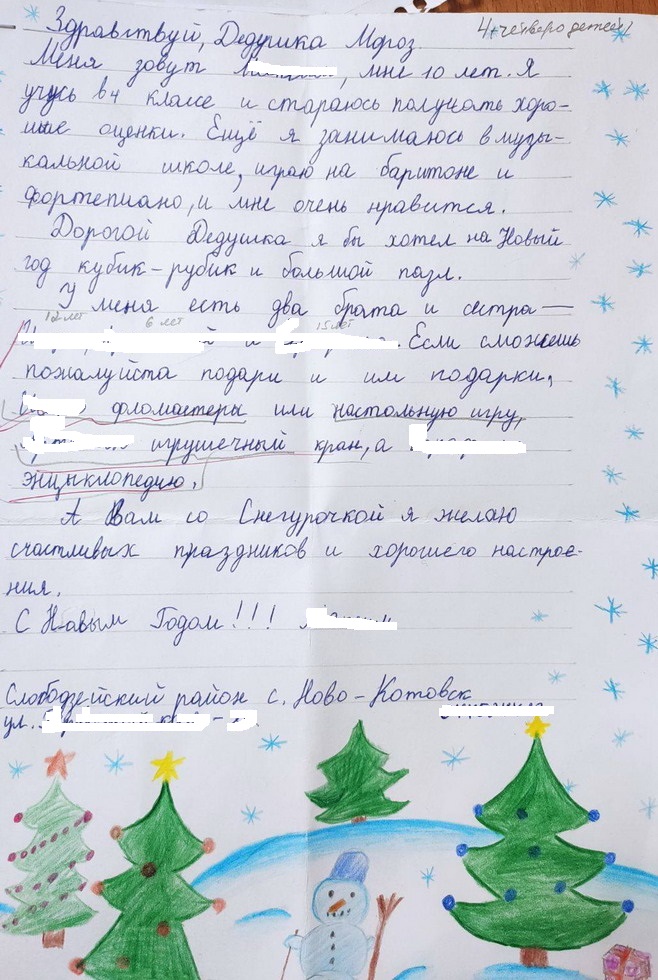 4 (четверо детей)
Здравствуй, Дедушка Мороз
Меня зовут , мне 10 лет. Я
учусь в 4 классе и стараюсь получать хоро-
шие оценки. Ещё я занимаюсь в музы-
кальной школе, играю на баритоне и
фортепиано, и мне очень нравится.
Дорогой Дедушка я бы хотел на Новый
год кубик-рубик и большой пазл.
У меня есть два брата и сестра —
12 лет 6 лет 15 лет
и . Если сможешь
пожалуйста подари и им подарки,
фломастеры или настольную игру,
игрушечный кран, а
энцыклопедию.
А Вам со Снегурочкой я желаю
счастливых праздников и хорошего настрое-
ния.
С Новым Годом!!!
Слободзейский район с. Ново-Котовск
ул.